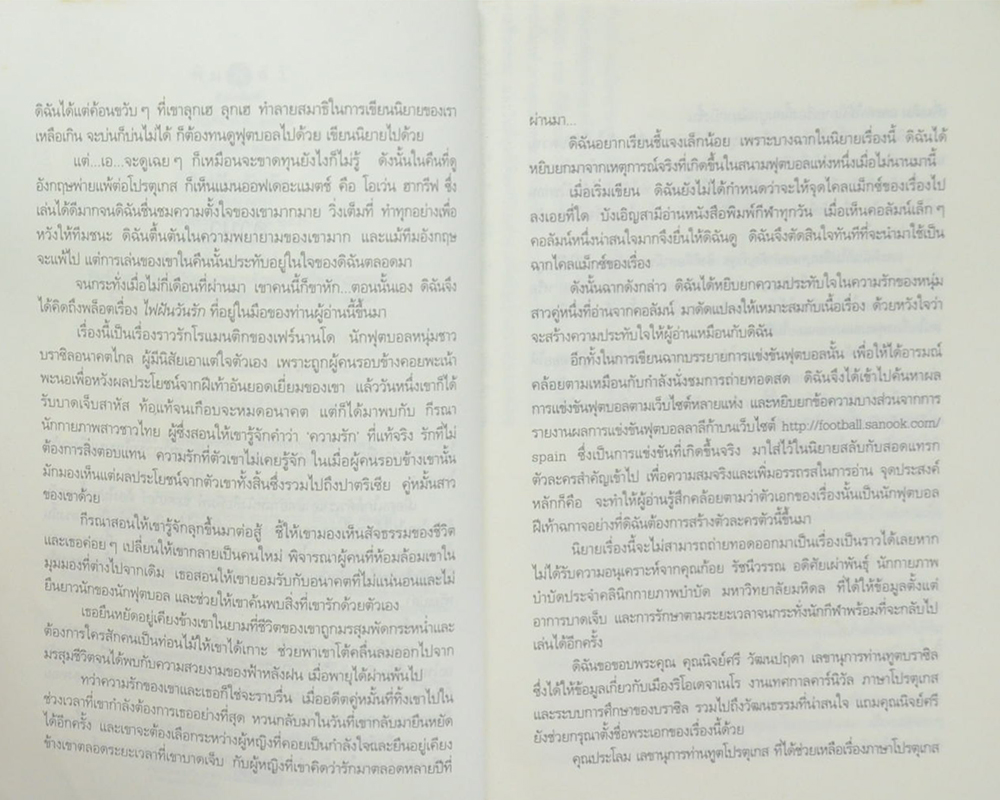 ดิฉันได้แต่ค้อนขวับๆ ที่เขาลุกเฮ ลุกเฮ ทำลายสมาธิในการเขียนนิยายของเรา
เหลือเกิน จะบ่นก็บ่นไม่ได้ ก็ต้องทนดูฟุตบอลไปด้วย เขียนนิยายไปด้วย
แต่...เอ...จะดูเฉยๆ ก็เหมือนจะขาดทุนยังไงก็ไม่รู้ ดังนั้นในคืนที่ดู
อังกฤษพ่ายแพ้ต่อโปรตุเกส ก็เห็นแมนออฟเดอะแมตช์ คือ โอเว่น ฮากรีฟ ซึ่ง
เล่นได้ดีมากจนดิฉันชื่นชมความตั้งใจของเขามากมาย วิ่งเต็มที่ ทำทุกอย่างเพื่อ
หวังให้ทีมชนะ ดิฉันตื้นตันในความพยายามของเขามาก และแม้ทีมอังกฤษ
จะแพ้ไป แต่การเล่นของเขาในคืนนั้นประทับอยู่ในใจของดิฉันตลอดมา
จนกระทั่งเมื่อไม่กี่เดือนที่ผ่านมา เขาคนนี้ก็ขาหัก...ตอนนั้นเอง ดิฉันจึง
ได้คิดถึงพล็อตเรื่อง ไฟฝันวันรัก ที่อยู่ในมือของท่านผู้อ่านนี้ขึ้นมา
เรื่องนี้เป็นเรื่องราวรักโรแมนติกของเฟร์นานโด นักฟุตบอลหนุ่มชาว
บราซิลอนาคตไกล ผู้มีนิสัยเอาแต่ใจตัวเอง เพราะถูกผู้คนรอบข้างคอยพะเน้า
พะนอเพื่อหวังผลประโยชน์จากฝีเท้าอันยอดเยี่ยมของเขา แล้ววันหนึ่งเขาก็ได้
รับบาดเจ็บสาหัส ท้อแท้จนเกือบจะหมดอนาคต แต่ก็ได้มาพบกับ กีรณา
นักกายภาพสาวชาวไทย ผู้ซึ่งสอนให้เขารู้จักคำว่า ‘ความรัก’ ที่แท้จริง รักที่ไม่
ต้องการสิ่งตอบแทน ความรักที่ตัวเขาไม่เคยรู้จัก ในเมื่อผู้คนรอบข้างเขานั้น
มักมองเห็นแต่ผลประโยชน์จากตัวเขาทั้งสิ้นซึ่งรวมไปถึงปาตริเซีย คู่หมั้นสาว
ของเขาด้วย
กีรณาสอนให้เขารู้จักลุกขึ้นมาต่อสู้ ชี้ให้เขามองเห็นสัจธรรมของชีวิต
และเธอค่อยๆ เปลี่ยนให้เขากลายเป็นคนใหม่ พิจารณาผู้คนที่ห้อมล้อมเขาใน
มุมมองที่ต่างไปจากเดิม เธอสอนให้เขายอมรับกับอนาคตที่ไม่แน่นอนและไม่
ยืนยาวนักของนักฟุตบอล และช่วยให้เขาค้นพบสิ่งที่เขารักด้วยตัวเอง
เธอยืนหยัดอยู่เคียงข้างเขาในยามที่ชีวิตของเขาถูกมรสุมพัดกระหน่ำและ
ต้องการใครสักคนเป็นท่อนไม้ให้เขาได้เกาะ ช่วยพาเขาโต้คลื่นลมออกไปจาก
มรสุมชีวิตจนได้พบกับความสวยงามของฟ้าหลังฝน เมื่อพายุได้ผ่านพ้นไป
ทว่าความรักของเขาและเธอก็ใช่จะราบรื่น เมื่ออดีตคู่หมั้นที่ทิ้งเขาไปใน
ช่วงเวลาที่เขากำลังต้องการเธออย่างที่สุด หวนกลับมาในวันที่เขากลับมายืนหยัด
ได้อีกครั้ง และเขาจะต้องเลือกระหว่างผู้หญิงที่คอยเป็นกำลังใจและยืนอยู่เคียง
ข้างเขาตลอดระยะเวลาที่เขาบาดเจ็บ กับผู้หญิงที่เขาคิดว่ารักมาตลอดหลายปีที่
ผ่านมา...
ดิฉันอยากเรียนชี้แจงเล็กน้อย เพราะบางฉากในนิยายเรื่องนี้ ดิฉันได้
หยิบยกมาจากเหตุการณ์จริงที่เกิดขึ้นในสนามฟุตบอลแห่งหนึ่งเมื่อไม่นานมานี้
เมื่อเริ่มเขียน ดิฉันยังไม่ได้กำหนดว่าจะให้จุดไคลแม็กซ์ของเรื่องไป
ลงเอยที่ใด บังเอิญสามีอ่านหนังสือพิมพ์กีฬาทุกวัน เมื่อเห็นคอลัมน์เล็กๆ
คอลัมน์หนึ่งน่าสนใจมากจึงยื่นให้ดิฉันดู ดิฉันจึงตัดสินใจทันทีที่จะนำมาใช้เป็น
ฉากไคลแม็กซ์ของเรื่อง
ดังนั้นฉากดังกล่าว ดิฉันได้หยิบยกความประทับใจในความรักของหนุ่ม
สาวคู่หนึ่งที่อ่านจากคอลัมน์ มาดัดแปลงให้เหมาะสมกับเนื้อเรื่อง ด้วยหวังใจว่า
จะสร้างความประทับใจให้ผู้อ่านเหมือนกับดิฉัน
อีกทั้งในการเขียนฉากบรรยายการแข่งขันฟุตบอลนั้น เพื่อให้ได้อารมณ์
คล้อยตามเหมือนกับกำลังนั่งชมการถ่ายทอดสด ดิฉันจึงได้เข้าไปค้นหาผล
การแข่งขันฟุตบอลตามเว็บไซต์หลายแห่ง และหยิบยกข้อความบางส่วนจากการ
รายงานผลการแข่งขันฟุตบอลลาลีก้าบนเว็บไซต์ http://football.sanook.com/
spain ซึ่งเป็นการแข่งขันที่เกิดขึ้นจริง มาใส่ไว้ในนิยายสลับกับสอดแทรก
ตัวละครสำคัญเข้าไป เพื่อความสมจริงและเพิ่มอรรถรสในการอ่าน จุดประสงค์
หลักก็คือ จะทำให้ผู้อ่านรู้สึกคล้อยตามว่าตัวเอกของเรื่องนั้นเป็นนักฟุตบอล
ฝีเท้าฉกาจอย่างที่ดิฉันต้องการสร้างตัวละครตัวนี้ขึ้นมา
นิยายเรื่องนี้จะไม่สามารถถ่ายทอดออกมาเป็นเรื่องเป็นราวได้เลยหาก
ไม่ได้รับความอนุเคราะห์จากคุณก้อย รัชนีวรรณ อดิศัยเผ่าพันธุ์ นักกายภาพ
บำบัดประจำคลินิกกายภาพบำบัด มหาวิทยาลัยมหิดล ที่ได้ให้ข้อมูลตั้งแต่
อาการบาดเจ็บ และการรักษาตามระยะเวลาจนกระทั่งนักกีฬาพร้อมที่จะกลับไป
เล่นได้อีกครั้ง
ดิฉันขอขอบพระคุณ คุณนิจย์ศรี วัฒนปฤดา เลขานุการท่านทูตบราซิล
ซึ่งได้ให้ข้อมูลเกี่ยวกับเมืองริโอเดจาเนโร งานเทศกาลคาร์นิวัล ภาษาโปรตุเกส
และระบบการศึกษาของบราซิล รวมไปถึงวัฒนธรรมที่น่าสนใจ แถมคุณนิจย์ศรี
ยังช่วยกรุณาตั้งชื่อพระเอกของเรื่องนี้ด้วย
คุณประโลม เลขานุการท่านทูตโปรตุเกส ที่ได้ช่วยเหลือเรื่องภาษาโปรตุเกส